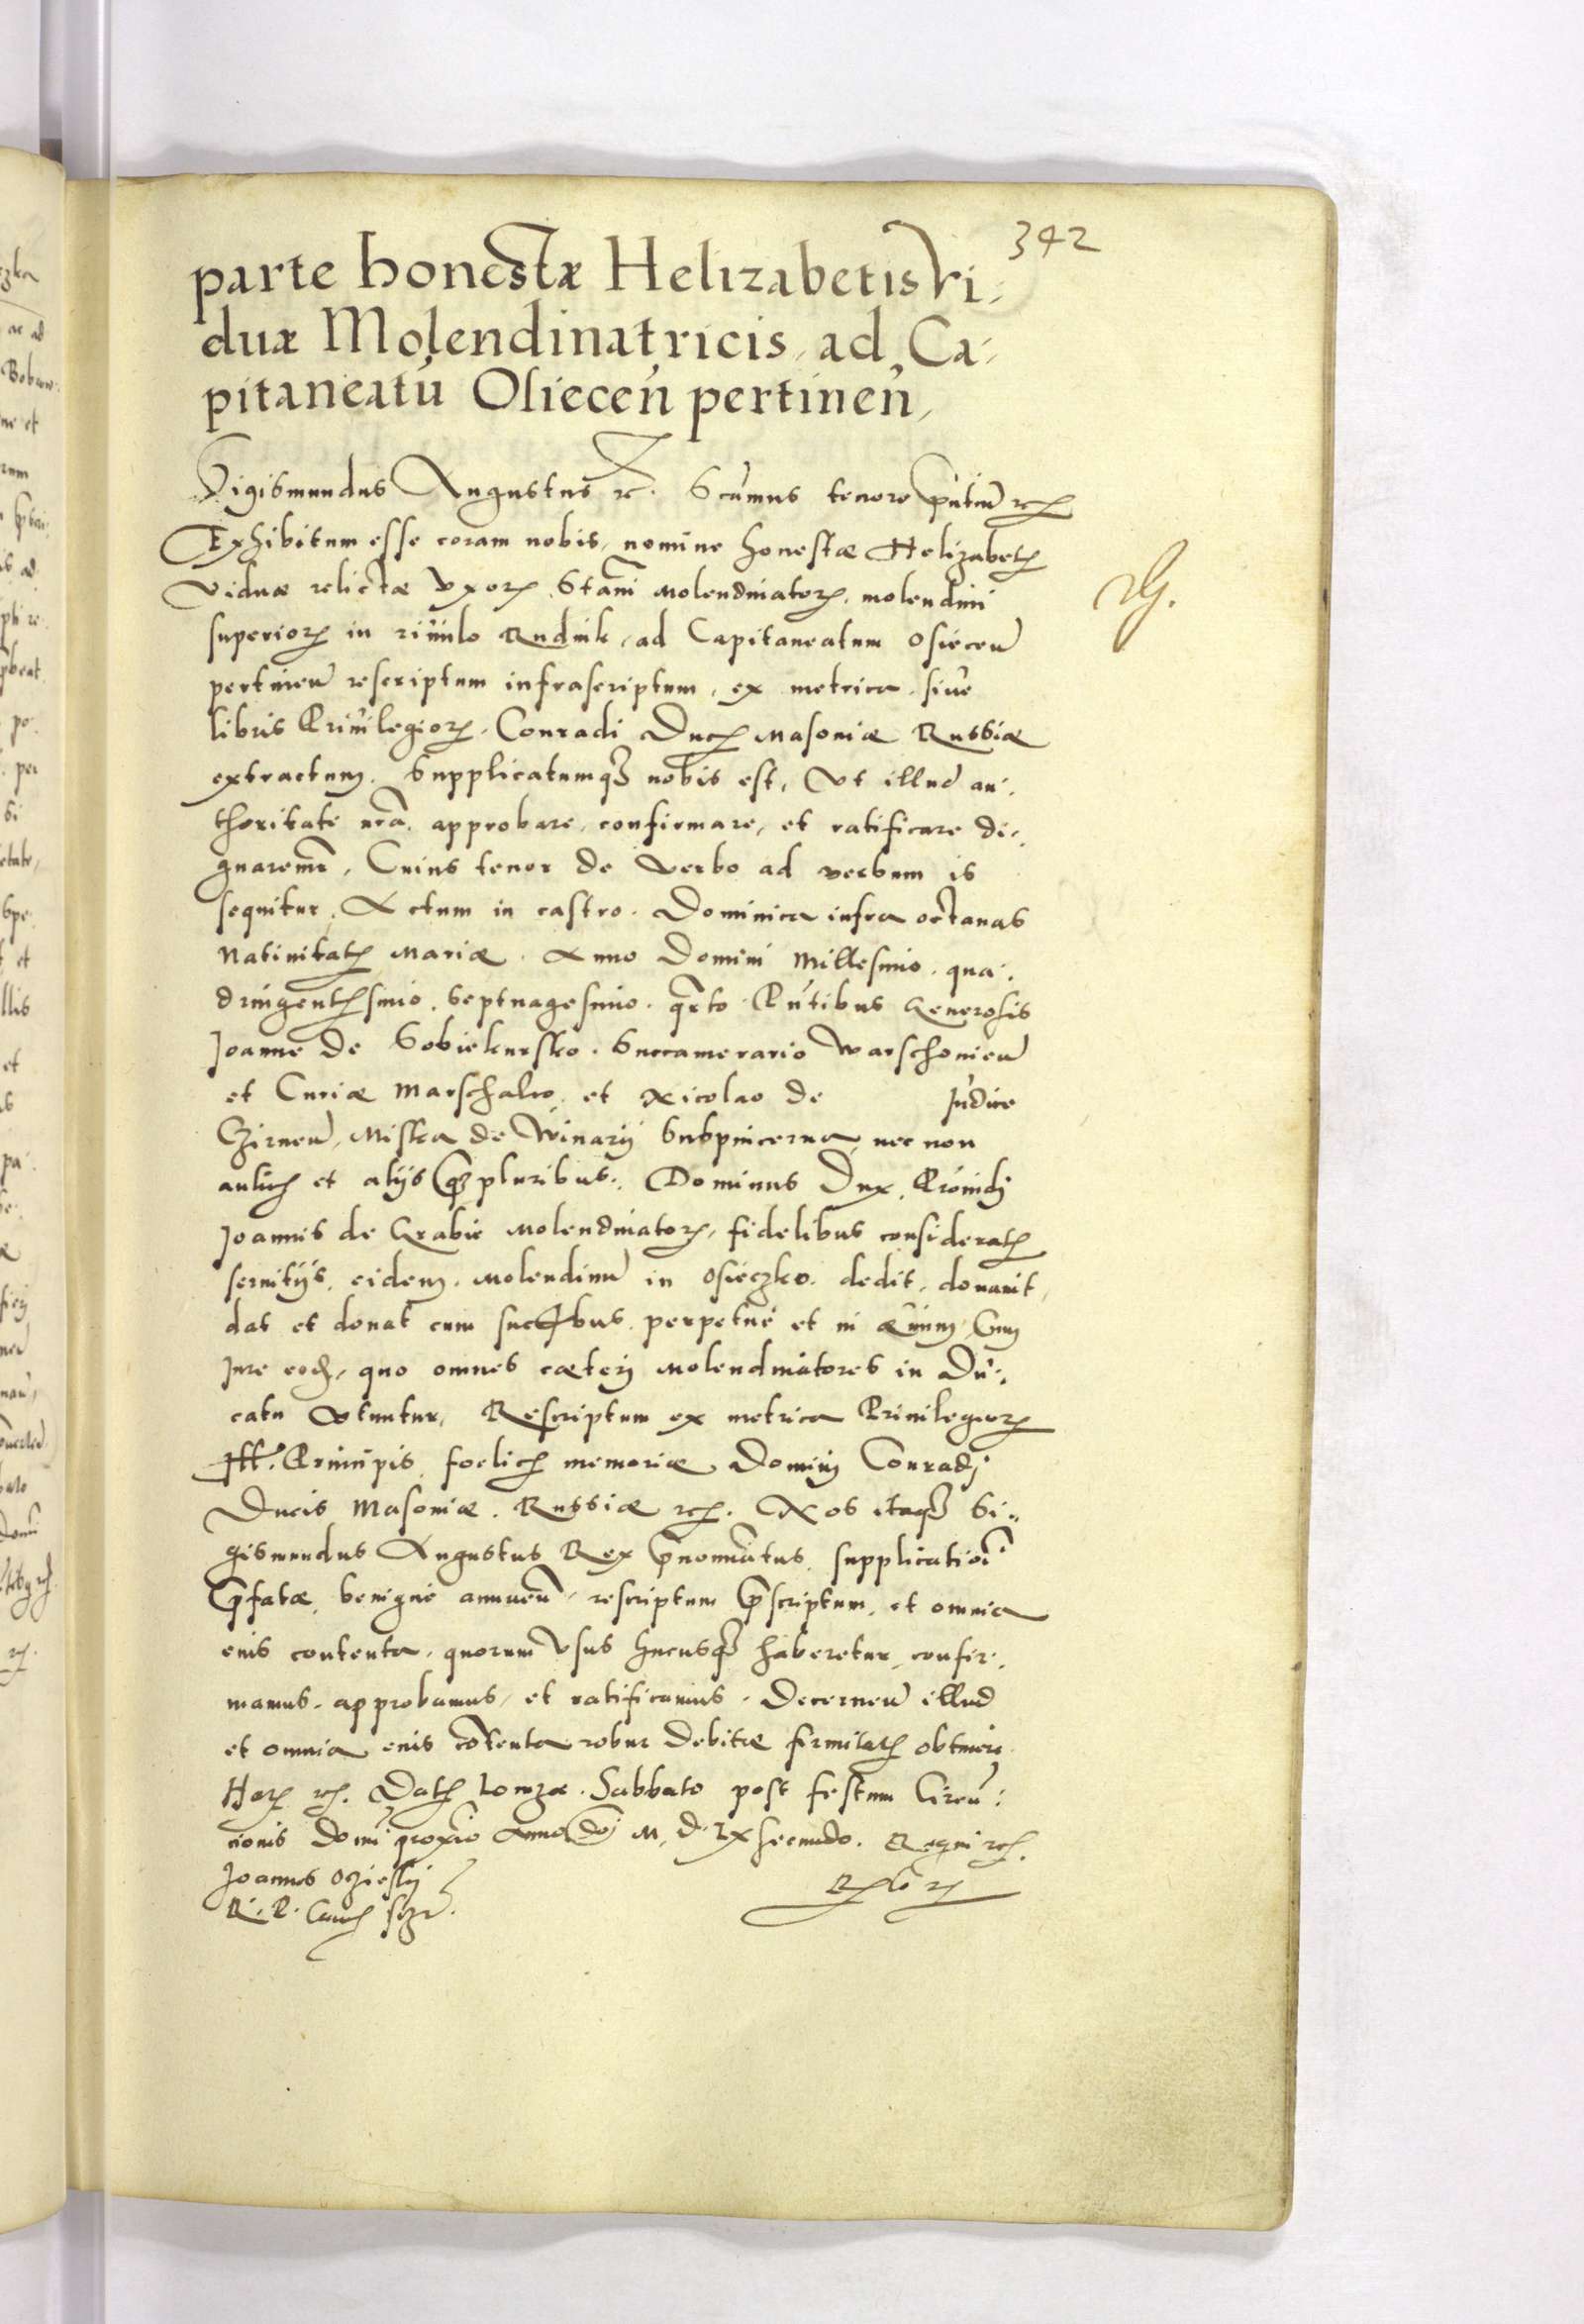 342
parte honestæ Helizabetis vi-
duæ Molendinatricis, ad Ca-
pitaneatū Osiecen̄ pertinen̄,
Sigismundus Augustus rc. Scūmus tenore pn̄tiū rcꝭ
Exhibitum esse coram nobis, nomine honestæ Helizabetꝭ
viduæ relictæ vxorꝭ Stāni Molendinatorꝭ, molendini
superiorꝭ in riuulo Rudnik, ad Capitaneatum Osiecen̄
pertinen̄ rescriptum infrascriptum, ex metrica siue
libris Priuilegiorꝝ Conradi Ducꝭ Masouiæ Russiæ
extractum. Supplicatumqꝫ nobis est, vt illud au-
thoritate nrā approbare, confirmare, et ratificare di-
gnaremr̄, Cuius tenor de verbo ad verbum is
sequitur. Actum in castro. Dominica infra octauas
Natiuitatꝭ Mariæ. Anno Domini Millesimo qua-
dringentꝭsimo septuagesimo qrto. Pn̄tibus Generosis
Joanne de Sobiekursko. Succamerario Warschouien̄
et Curiæ Marschalco, et Nicolao de Judice
Czirnen̄, Mistka de Winarÿ Subpincerna, nec non
aulicꝭ et alÿs qꝫ pluribus. Dominus Dux, Prouidj
Joannis de Grabie Molendinatorꝭ, fidelibus consideratꝭ
seruitÿs, eidem, Molendinū in Osieczko, dedit, donauit,
dat et donat cum succꝭbus perpetuè et in æuum, Cum
Jure eodꝭ, quo omnes cæterj Molendinatores in Du-
catu vtuntur. Rescriptum ex metrica Priuilegiorꝝ
Jll. Principis fœlicꝭ memoriæ Dominj Conradj
Ducis Masouiæ. Russiæ rcꝭ. Nos itaqꝫ Si-
gismundus Augustus Rex p̄nominatus supplicationi
p̄fatæ, benignè annuen̄, rescriptum p̄scriptum, et omnia
eius contenta, quorum vsus hucusqꝫ haberetur, confir-
mamus, approbamus, et ratificamus. Decernen̄ illud
et omnia eius cōtenta robur debitæ firmitatꝭ obtinere
Harꝝ rcꝭ. Datꝭ Lomzæ. Sabbato post festum Circū-
cionis Domī proxīo Anno dnj M. D. LX secundo. Regni rcꝭ.
Joannes Ocieskj
R. P. Cancꝭ